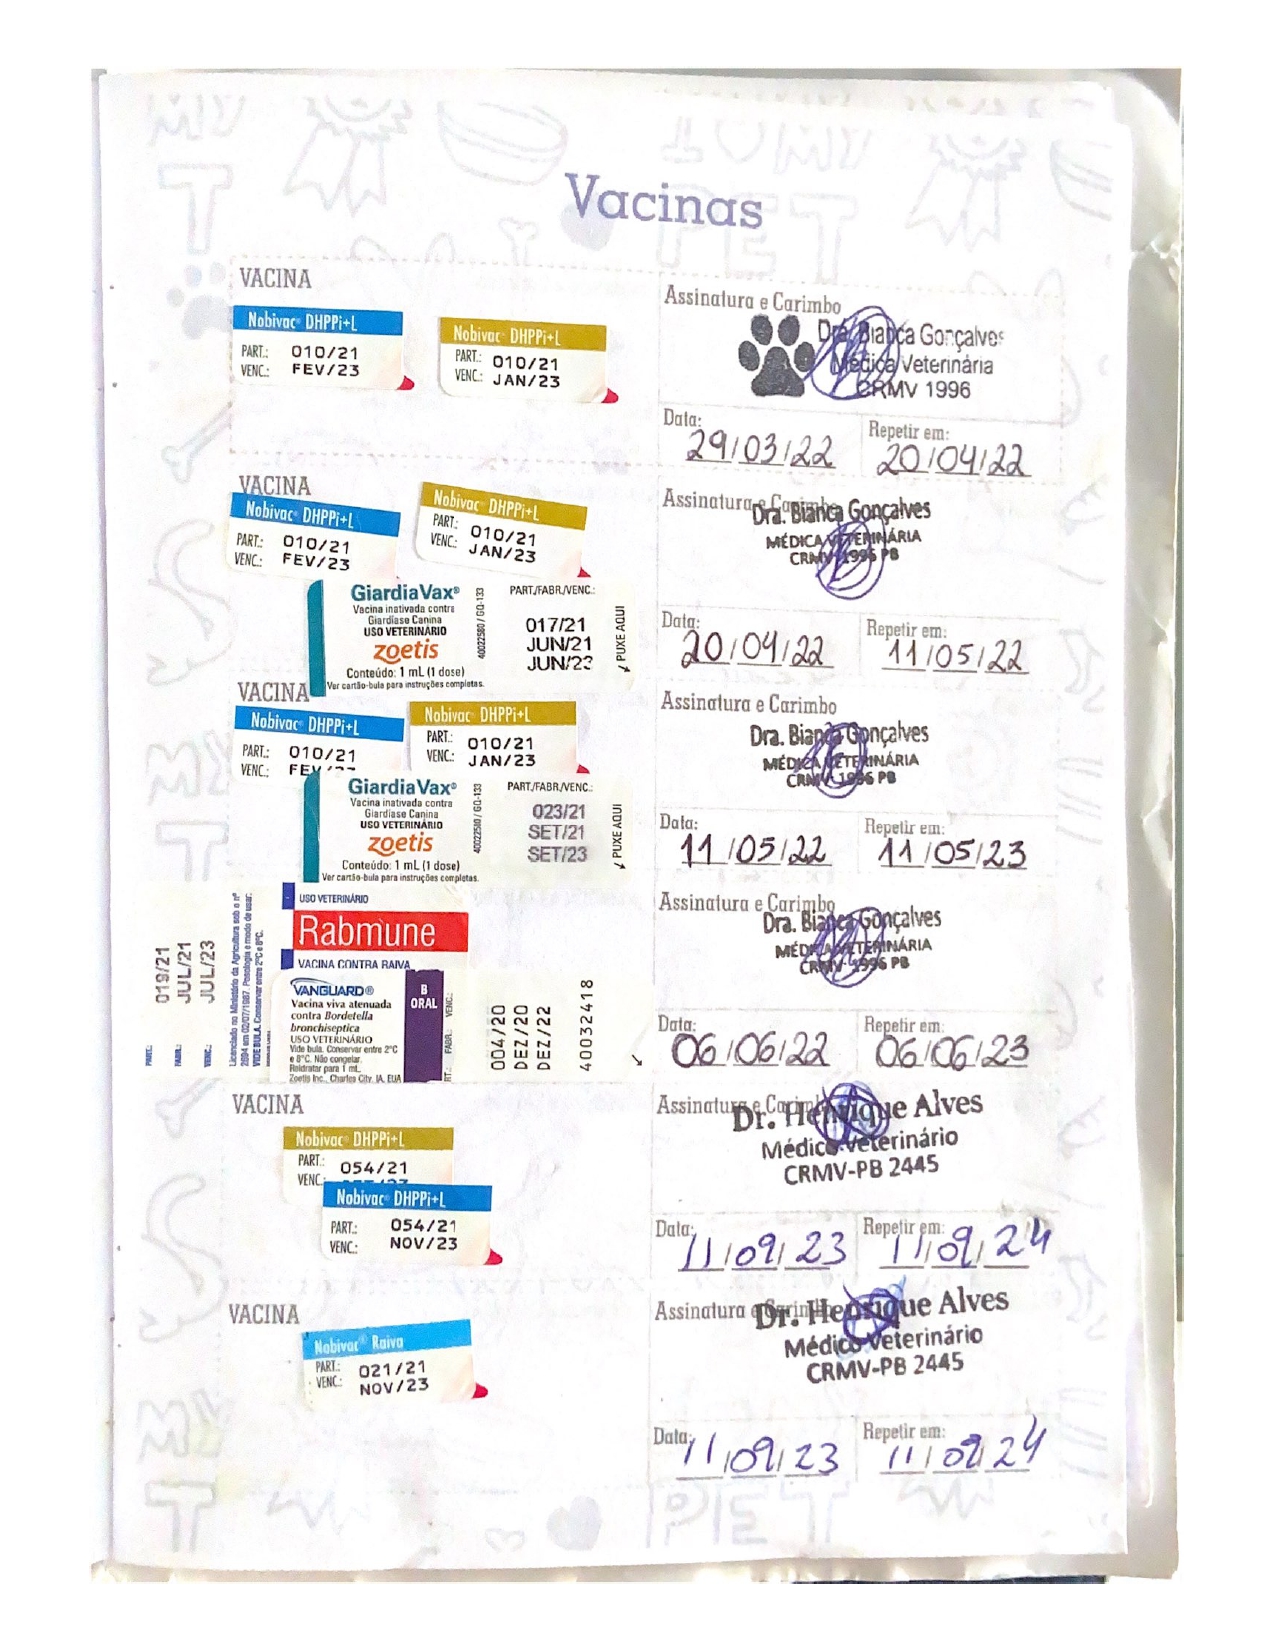 Vacinas
VACINA
Nobivac® DHPPi+L
PART.: 010/21
VENC.: FEV/23
Nobivac® DHPPi+L
PART.: 010/21
VENC.: JAN/23
Assinatura e Carimbo
Dra. Bianca Gonçalves
Médica Veterinária
CRMV 1996
Data:
29/03/22
Repetir em:
20/04/22
VACINA
Nobivac® DHPPi+L
PART.: 010/21
VENC.: FEV/23
Nobivac® DHPPi+L
PART.: 010/21
VENC.: JAN/23
GiardiaVax®
Vacina inativada contra
Giardíase Canina
USO VETERINÁRIO
zoetis
Conteúdo: 1 mL (1 dose)
Ver cartão-bula para instruções completas.
40022580 / GQ-133
PART./FABR./VENC.:
017/21
JUN/21
JUN/23
PUXE AQUI
Assinatura e Carimbo
Dra. Bianca Gonçalves
MÉDICA VETERINÁRIA
CRMV 1996 PB
Data:
20/04/22
Repetir em:
11/05/22
VACINA
Nobivac® DHPPi+L
PART.: 010/21
VENC.:
Nobivac® DHPPi+L
PART.: 010/21
VENC.: JAN/23
GiardiaVax®
Vacina inativada contra
Giardíase Canina
USO VETERINÁRIO
zoetis
Conteúdo: 1 mL (1 dose)
Ver cartão-bula para instruções completas.
40022580 / GQ-133
PART./FABR./VENC.:
023/21
SET/21
SET/23
PUXE AQUI
Assinatura e Carimbo
Dra. Bianca Gonçalves
MÉDICA VETERINÁRIA
CRMV 1996 PB
Data:
11/05/22
Repetir em:
11/05/23
PART.: 019/21
FABR.: JUL/21
VENC.: JUL/23
Licenciado no Ministério da Agricultura sob o nº
2694 em 02/07/1987. Posologia e modo de usar:
VIDE BULA. Conservar entre 2°C e 8°C.
USO VETERINÁRIO
Rabmune
VACINA CONTRA RAIVA
VANGUARD®
Vacina viva atenuada
contra Bordetella
bronchiseptica
USO VETERINÁRIO
Vide bula. Conservar entre 2°C
e 8°C. Não congelar.
Reidratar para 1 mL.
Zoetis Inc., Charles City, IA, EUA
B
ORAL
FABR.: VENC.:
004/20
DEZ/20
DEZ/22
40032418
Assinatura e Carimbo
Dra. Bianca Gonçalves
MÉDICA VETERINÁRIA
CRMV 1996 PB
Data:
06/06/22
Repetir em:
06/06/23
VACINA
Nobivac® DHPPi+L
PART.: 054/21
VENC.:
Nobivac® DHPPi+L
PART.: 054/21
VENC.: NOV/23
Assinatura e Carimbo
Dr. Henrique Alves
Médico Veterinário
CRMV-PB 2445
Data:
11/09/23
Repetir em:
11/09/24
VACINA
Nobivac® Raiva
PART.: 021/21
VENC.: NOV/23
Assinatura e Carimbo
Dr. Henrique Alves
Médico Veterinário
CRMV-PB 2445
Data:
11/09/23
Repetir em:
11/09/24